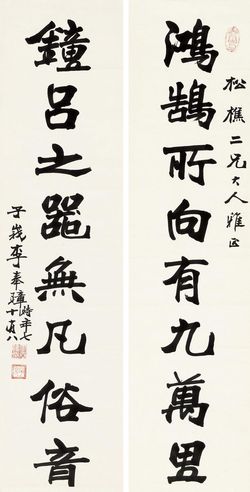 松樵二兄大人雅正
鴻鵠所向有九萬里
鐘呂之器無凡俗音
子 李奉璋時年七十有八